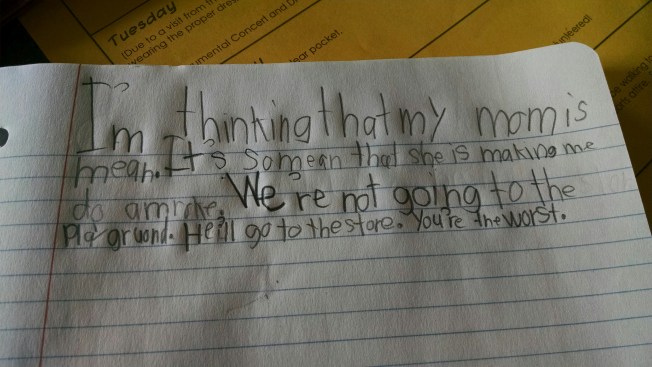 Tuesday
(Due to a visit from th
wearing the proper dres
umental Concert and D
ear pocket.
unteered!
I'm thinking that my mom is
mean. It's so mean that she is making me
do
We're not going to the
Playgruond. He'll go to the store. You're the worst.